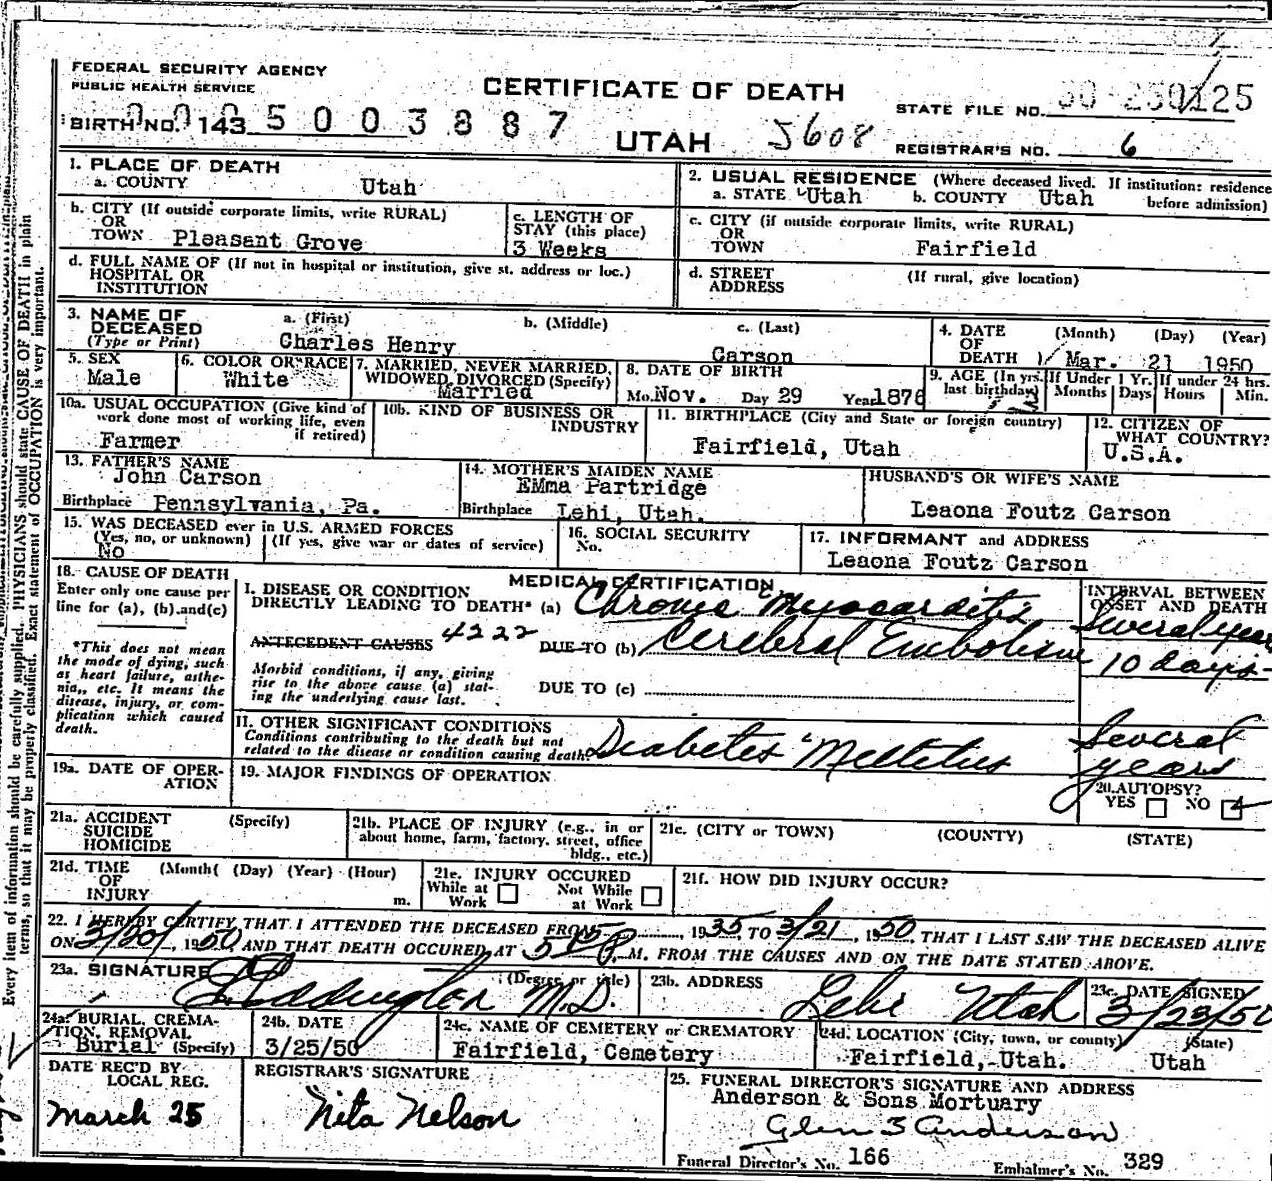 FEDERAL SECURITY AGENCY
PUBLIC HEALTH SERVICE
CERTIFICATE OF DEATH
STATE FILE NO.
BIRTH NO. 143
0 0 0 5 0 0 3 8 8 7
UTAH 5608
REGISTRAR'S NO. 6
1. PLACE OF DEATH
a. COUNTY Utah
2. USUAL RESIDENCE (Where deceased lived. If institution: residence before admission)
a. STATE Utah b. COUNTY Utah
b. CITY (If outside corporate limits, write RURAL)
OR
TOWN Pleasant Grove
c. LENGTH OF
STAY (this place)
3 Weeks
c. CITY (if outside corporate limits, write RURAL)
OR
TOWN Fairfield
d. FULL NAME OF (If not in hospital or institution, give st. address or loc.)
HOSPITAL OR
INSTITUTION
d. STREET (If rural, give location)
ADDRESS
3. NAME OF DECEASED
(Type or Print)
a. (First) b. (Middle) c. (Last)
Charles Henry Carson
4. DATE OF DEATH (Month) (Day) (Year)
Mar. 21 1950
5. SEX
Male
6. COLOR OR RACE
White
7. MARRIED, NEVER MARRIED,
WIDOWED, DIVORCED (Specify)
Married
8. DATE OF BIRTH
Mo. Nov. Day 29 Year 1876
9. AGE (In yrs. last birthday)
If Under 1 Yr. Months Days
If under 24 hrs. Hours Min.
10a. USUAL OCCUPATION (Give kind of
work done most of working life, even
if retired)
Farmer
10b. KIND OF BUSINESS OR
INDUSTRY
11. BIRTHPLACE (City and State or foreign country)
Fairfield, Utah
12. CITIZEN OF
WHAT COUNTRY?
U.S.A.
13. FATHER'S NAME
John Carson
Birthplace Pennsylvania, Pa.
14. MOTHER'S MAIDEN NAME
EMma Partridge
Birthplace Lehi, Utah.
HUSBAND'S OR WIFE'S NAME
Leaona Foutz Carson
15. WAS DECEASED ever in U.S. ARMED FORCES
(Yes, no, or unknown) (If yes, give war or dates of service)
No
16. SOCIAL SECURITY
No.
17. INFORMANT and ADDRESS
Leaona Foutz Carson
18. CAUSE OF DEATH
Enter only one cause per
line for (a), (b) and (c)
*This does not mean
the mode of dying, such
as heart failure, asthe-
nia, etc. It means the
disease, injury, or com-
plication which caused
death.
MEDICAL CERTIFICATION
I. DISEASE OR CONDITION
DIRECTLY LEADING TO DEATH* (a) Chronic Myocarditis
INTERVAL BETWEEN
ONSET AND DEATH
Several years
ANTECEDENT CAUSES 4222
DUE TO (b) Cerebral Embolism
10 days
Morbid conditions, if any, giving
rise to the above cause (a) stat-
ing the underlying cause last.
DUE TO (c)
II. OTHER SIGNIFICANT CONDITIONS
Conditions contributing to the death but not
related to the disease or condition causing death.
Diabetes Mellitus
Several
years
19a. DATE OF OPER-
ATION
19. MAJOR FINDINGS OF OPERATION
20. AUTOPSY?
YES NO
21a. ACCIDENT (Specify)
SUICIDE
HOMICIDE
21b. PLACE OF INJURY (e.g., in or
about home, farm, factory, street, office
bldg., etc.)
21c. (CITY or TOWN) (COUNTY) (STATE)
21d. TIME (Month( (Day) (Year) (Hour)
OF
INJURY m.
21e. INJURY OCCURED
While at Work Not While at Work
21f. HOW DID INJURY OCCUR?
22. I HEREBY CERTIFY THAT I ATTENDED THE DECEASED FROM 1935, TO 3/21, 1950, THAT I LAST SAW THE DECEASED ALIVE
ON 3/20/, 1950 AND THAT DEATH OCCURED AT P.M. FROM THE CAUSES AND ON THE DATE STATED ABOVE.
23a. SIGNATURE (Degree or title)
Eddington M.D.
23b. ADDRESS
Lehi Utah
23c. DATE SIGNED
3/23/50
24a. BURIAL, CREMA-
TION, REMOVAL
Burial (Specify)
24b. DATE
3/25/50
24c. NAME OF CEMETERY or CREMATORY
Fairfield, Cemetery
24d. LOCATION (City, town, or county) (State)
Fairfield, Utah. Utah
DATE REC'D BY
LOCAL REG.
March 25
REGISTRAR'S SIGNATURE
Nita Nelson
25. FUNERAL DIRECTOR'S SIGNATURE AND ADDRESS
Anderson & Sons Mortuary
Glen S Anderson
Funeral Director's No. 166 Embalmer's No. 329
Every item of information should be carefully supplied. PHYSICIANS should state CAUSE OF DEATH in plain
terms, so that it may be properly classified. Exact statement of OCCUPATION is very important.